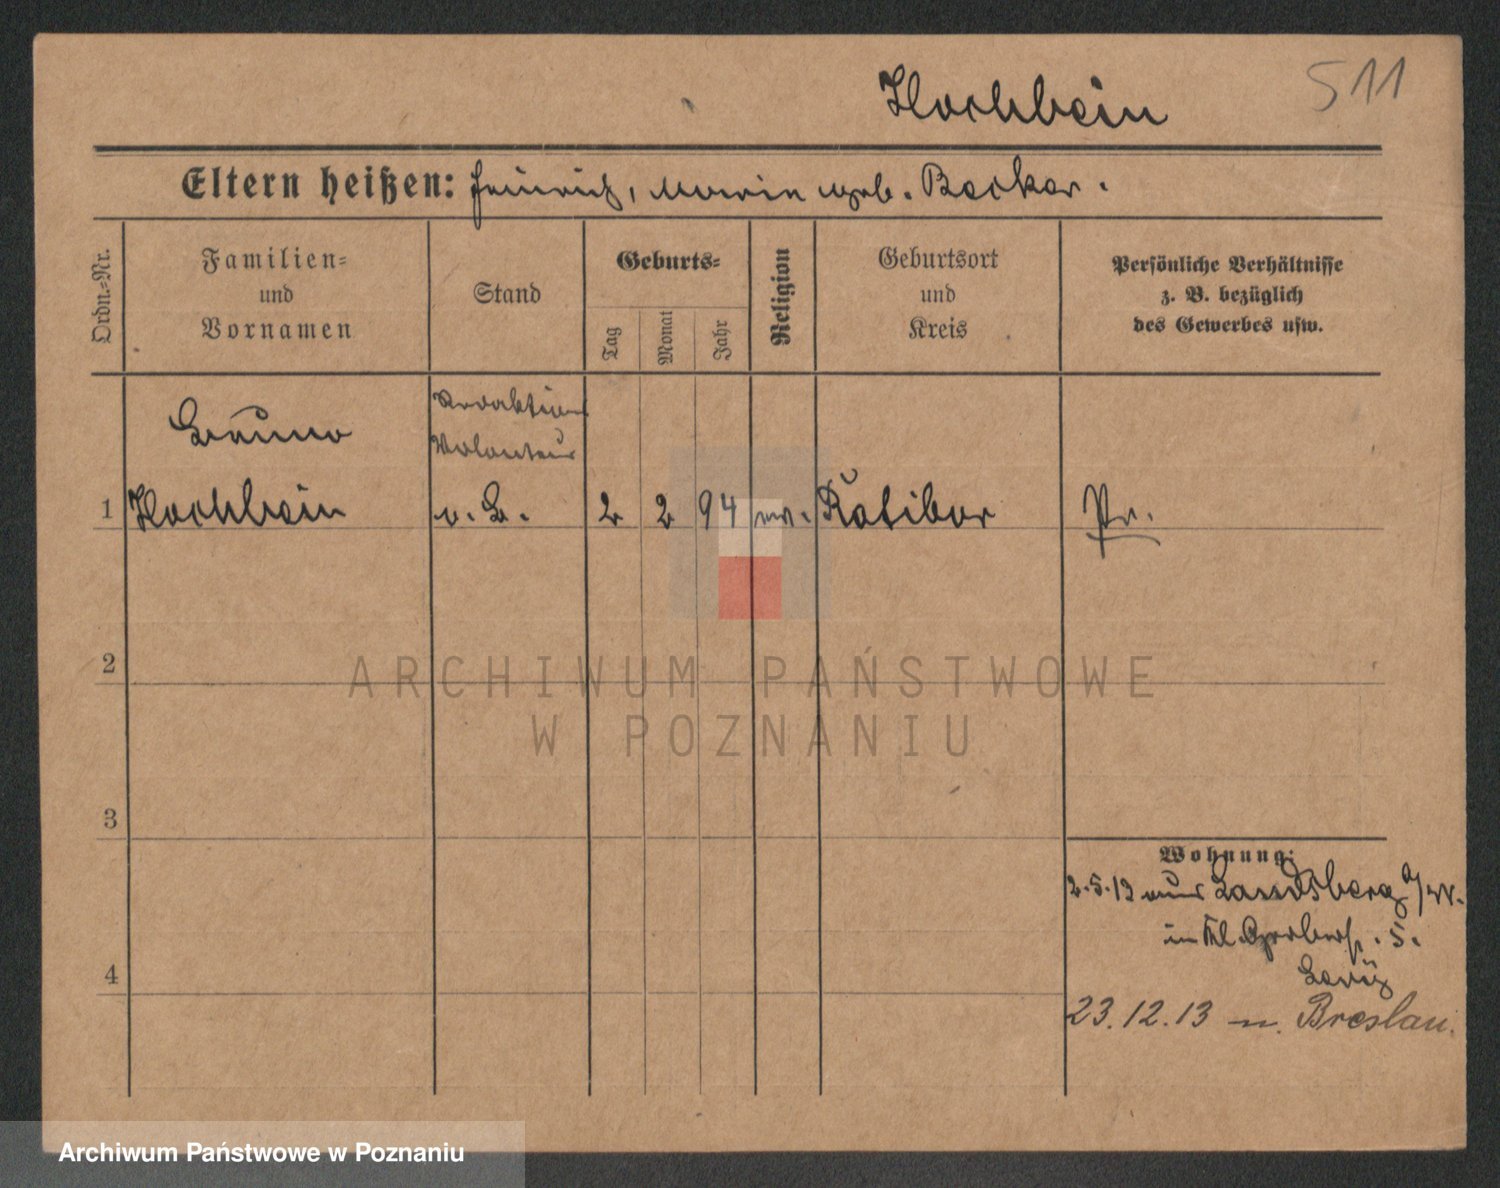 Hochbein
511
Eltern heißen: Heinrich, Maria geb. Becker.
Ordn.-Nr.
Familien-
und
Vornamen
Stand
Geburts-
Tag
Monat
Jahr
Religion
Geburtsort
und
Kreis
Persönliche Verhältnisse
z. B. bezüglich
des Gewerbes usw.
Bruno
Redaktions
Volonteur
1 Hochbein
2 2 94 Ratibor Pr.
2
ARCHIWUM PAŃSTWOWE
W POZNANIU
3
Wohnung:
2.5.13 aus Landsberg a/W.
in Kl. Gerberstr. 5.
4
23.12.13 n. Breslau.
Archiwum Państwowe w Poznaniu